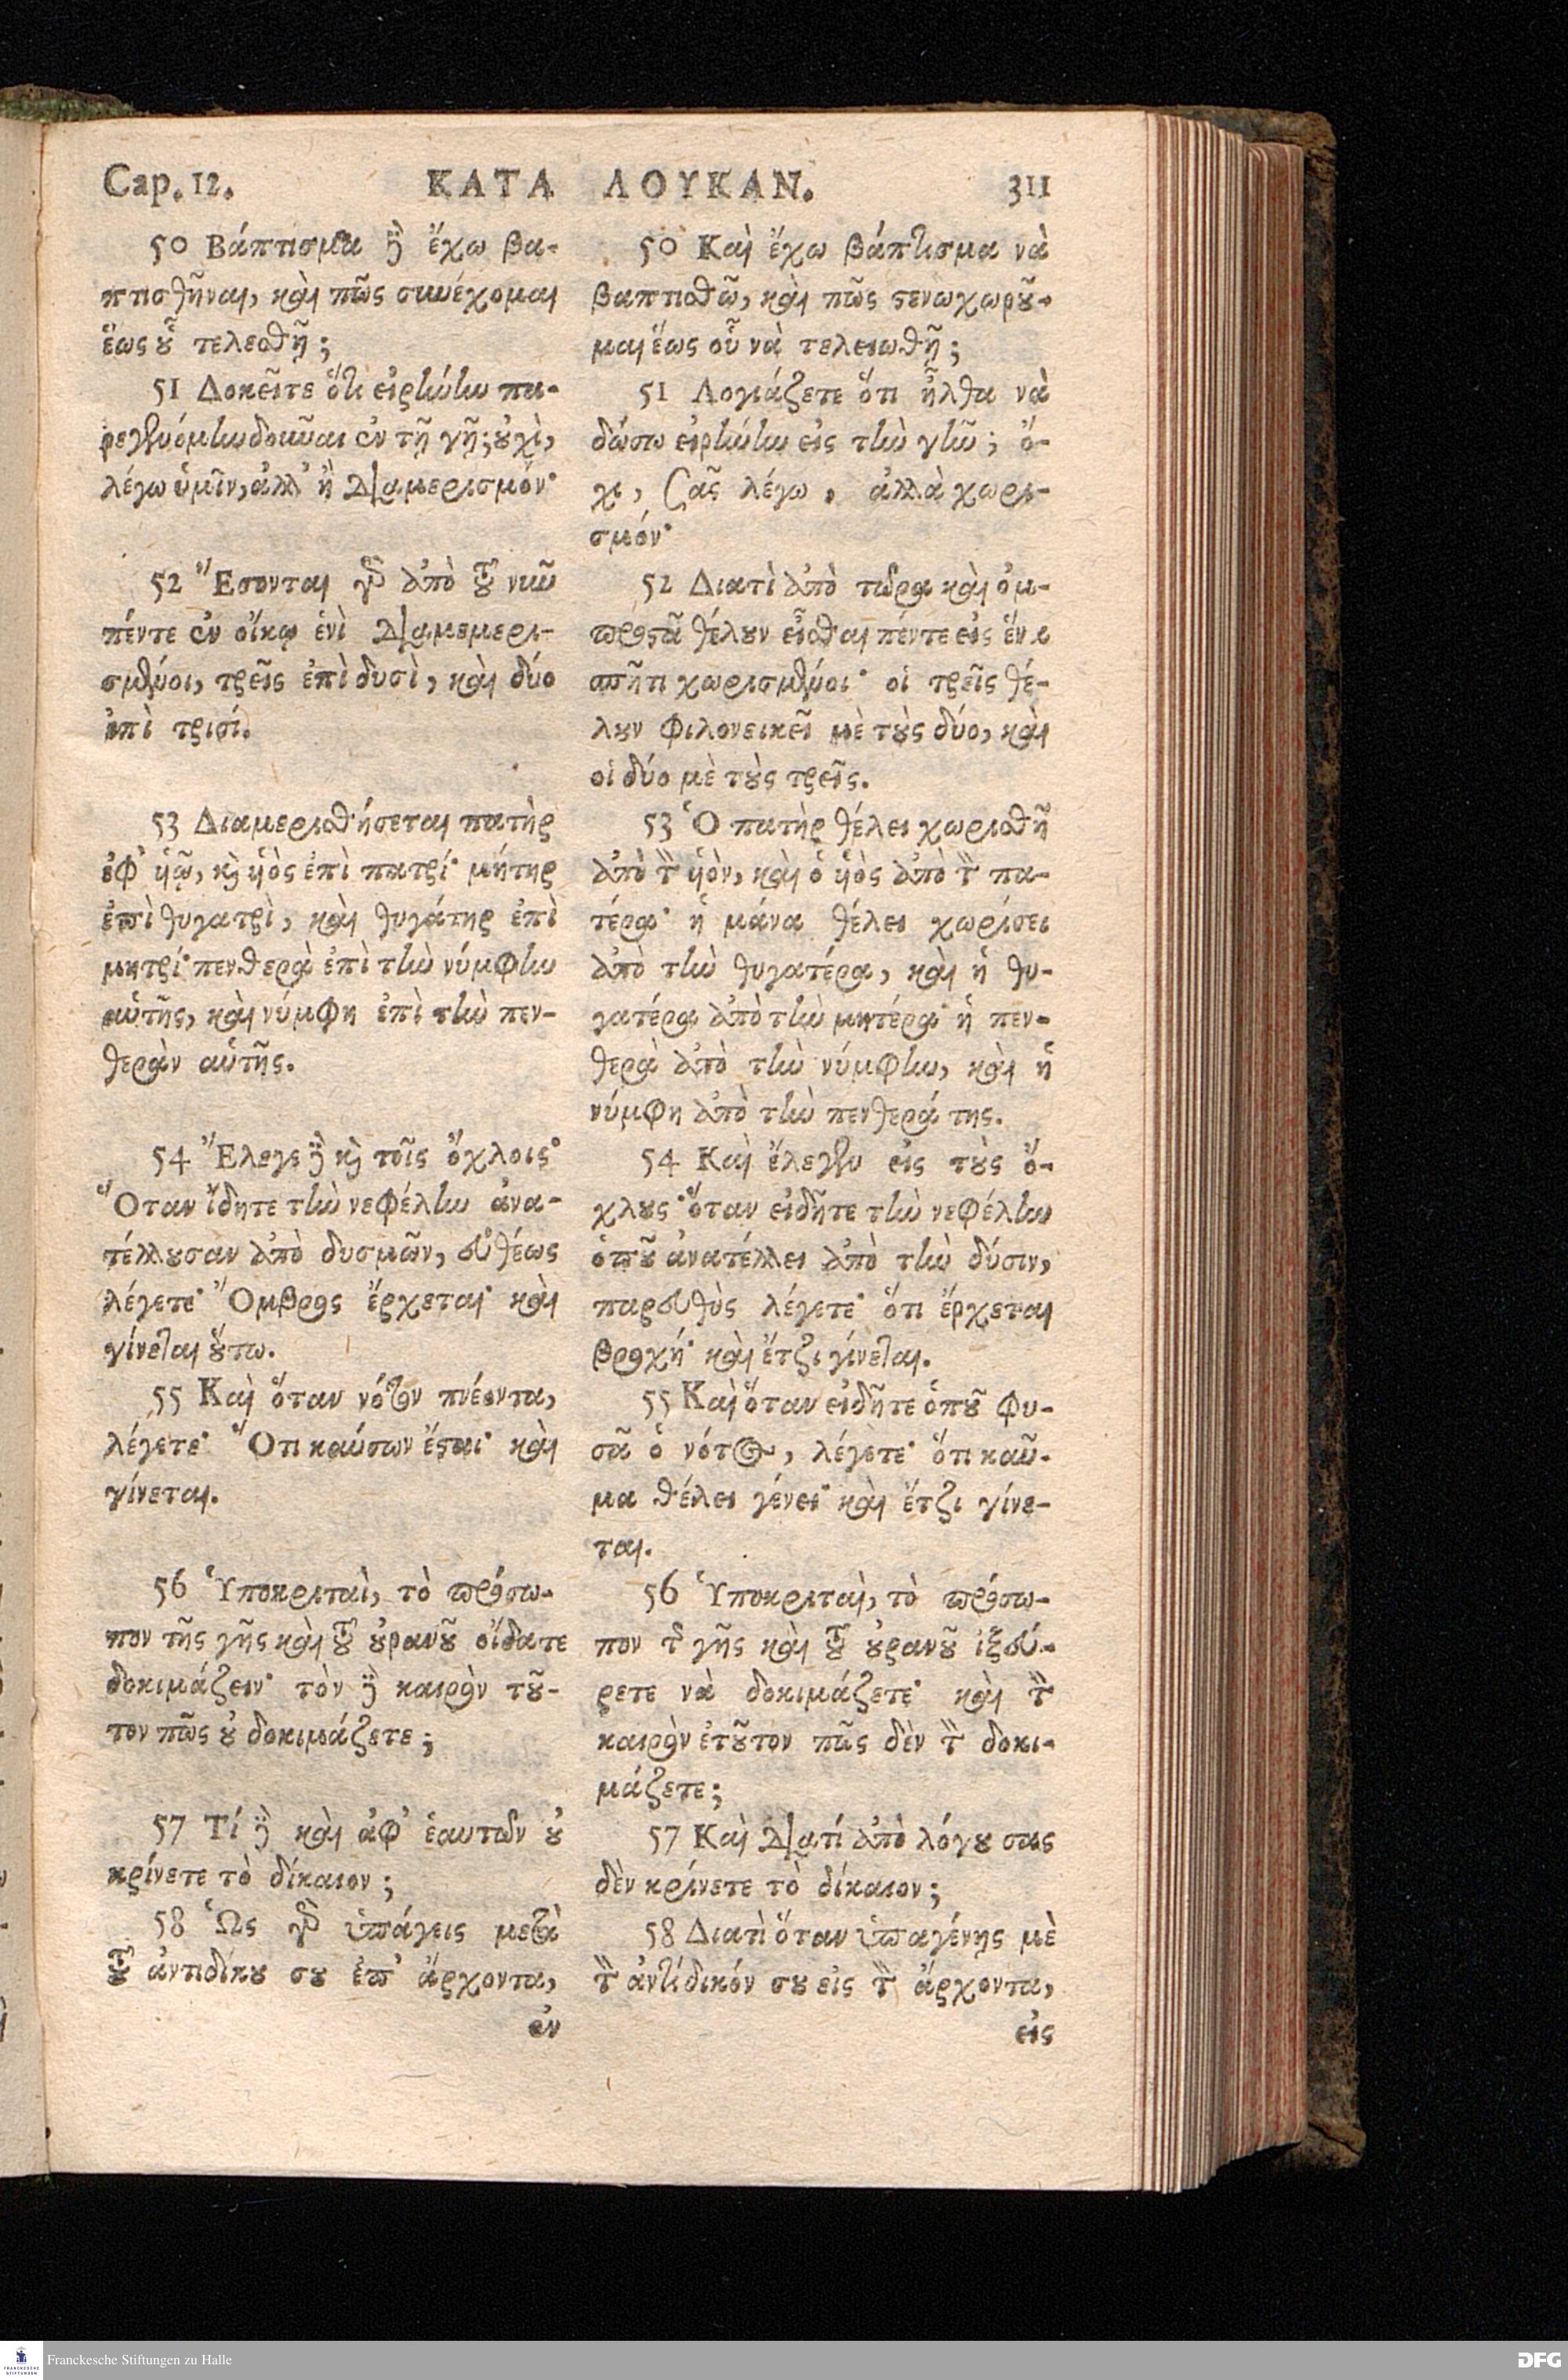 Cap. 12. ΚΑΤΑ ΛΟΥΚΑΝ. 311
50 Βάπτισμα δὲ ἔχω βα-
πτισθῆναι, καὶ πῶς συνέχομαι
ἕως οὗ τελεσθῇ;
51 Δοκεῖτε ὅτι εἰρήνην πα-
ρεγενόμην δοῦναι ἐν τῇ γῇ; οὐχὶ,
λέγω ὑμῖν, ἀλλ' ἢ διαμερισμόν·
52 Ἔσονται γὰρ ἀπὸ τοῦ νῦν
πέντε ἐν οἴκῳ ἑνὶ διαμεμερι-
σμένοι, τρεῖς ἐπὶ δυσὶ, καὶ δύο
ἐπὶ τρισί.
53 Διαμερισθήσεται πατὴρ
ἐφ' ὑιῷ, καὶ ὑιὸς ἐπὶ πατρί· μήτηρ
ἐπὶ θυγατρὶ, καὶ θυγάτηρ ἐπὶ
μητρί· πενθερὰ ἐπὶ τὴν νύμφην
αὑτῆς, καὶ νύμφη ἐπὶ τὴν πεν-
θερὰν αὑτῆς.
54 Ἔλεγε δὲ καὶ τοῖς ὄχλοις·
Ὅταν ἴδητε τὴν νεφέλην ἀνα-
τέλλουσαν ἀπὸ δυσμῶν, εὐθέως
λέγετε· Ὄμβρος ἔρχεται· καὶ
γίνεται οὕτω.
55 Καὶ ὅταν νότον πνέοντα,
λέγετε· Ὅτι καύσων ἔσται· καὶ
γίνεται.
56 Ὑποκριταὶ, τὸ πρόσω-
πον τῆς γῆς καὶ τοῦ οὐρανοῦ οἴδατε
δοκιμάζειν· τὸν δὲ καιρὸν τοῦ-
τον πῶς οὐ δοκιμάζετε;
57 Τί δὲ καὶ ἀφ' ἑαυτῶν οὐ
κρίνετε τὸ δίκαιον;
58 Ὡς γὰρ ὑπάγεις μετὰ
τοῦ ἀντιδίκου σου ἐπ' ἄρχοντα,
ἐν
50 Καὶ ἔχω βάπτισμα νὰ
βαπτισθῶ, καὶ πῶς στενωχωροῦ-
μαι ἕως οὗ νὰ τελειωθῇ;
51 Λογιάζετε ὅτι ἦλθα νὰ
δώσω εἰρήνην εἰς τὴν γῆν; ὄ-
χι, σᾶς λέγω, ἀλλὰ χωρι-
σμόν·
52 Διατὶ ἀπὸ τώρα καὶ ὀμ-
προστᾶ θέλουν εἶσθαι πέντε εἰς ἕνα
σπῆτι χωρισμένοι· οἱ τρεῖς θέ-
λουν φιλονεικεῖ μὲ τοὺς δύο, καὶ
οἱ δύο μὲ τοὺς τρεῖς.
53 Ὁ πατὴρ θέλει χωρισθῆ
ἀπὸ τὸν ὑιὸν, καὶ ὁ ὑιὸς ἀπὸ τὸν πα-
τέρα· ἡ μάνα θέλει χωρίσει
ἀπὸ τὴν θυγατέρα, καὶ ἡ θυ-
γατέρα ἀπὸ τὴν μητέρα· ἡ πεν-
θερὰ ἀπὸ τὴν νύμφην, καὶ ἡ
νύμφη ἀπὸ τὴν πενθερά της.
54 Καὶ ἔλεγεν εἰς τοὺς ὄ-
χλους· ὅταν εἰδῆτε τὴν νεφέλην
ὁποῦ ἀνατέλλει ἀπὸ τὴν δύσιν,
παρευθὺς λέγετε· ὅτι ἔρχεται
βροχή· καὶ ἔτζι γίνεται.
55 Καὶ ὅταν εἰδῆτε ὁποῦ φυ-
σᾶ ὁ νότος, λέγετε· ὅτι καῦ-
μα θέλει γένει· καὶ ἔτζι γίνε-
ται.
56 Ὑποκριταὶ, τὸ πρόσω-
πον τῆς γῆς καὶ τοῦ οὐρανοῦ ἰξεύ-
ρετε νὰ δοκιμάζετε· καὶ τὸν
καιρὸν ἐτοῦτον πῶς δὲν τὸν δοκι-
μάζετε;
57 Καὶ διατί ἀπὸ λόγου σας
δὲν κρίνετε τὸ δίκαιον;
58 Διατὶ ὅταν ὑπαγένης μὲ
τὸν ἀντίδικόν σου εἰς τὸν ἄρχοντα,
εἰς
FRANCKESCHE
STIFTUNGEN
Franckesche Stiftungen zu Halle
DFG